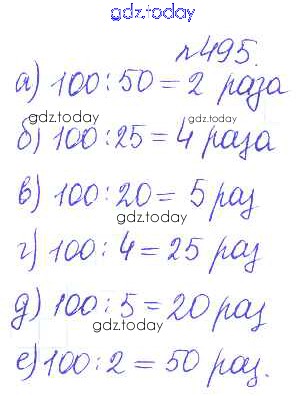 gdz.today
№495.
а) 100 : 50 = 2 раза
gdz.today
б) 100 : 25 = 4 раза
в) 100 : 20 = 5 раз
gdz.today
г) 100 : 4 = 25 раз
д) 100 : 5 = 20 раз
gdz.today
е) 100 : 2 = 50 раз.